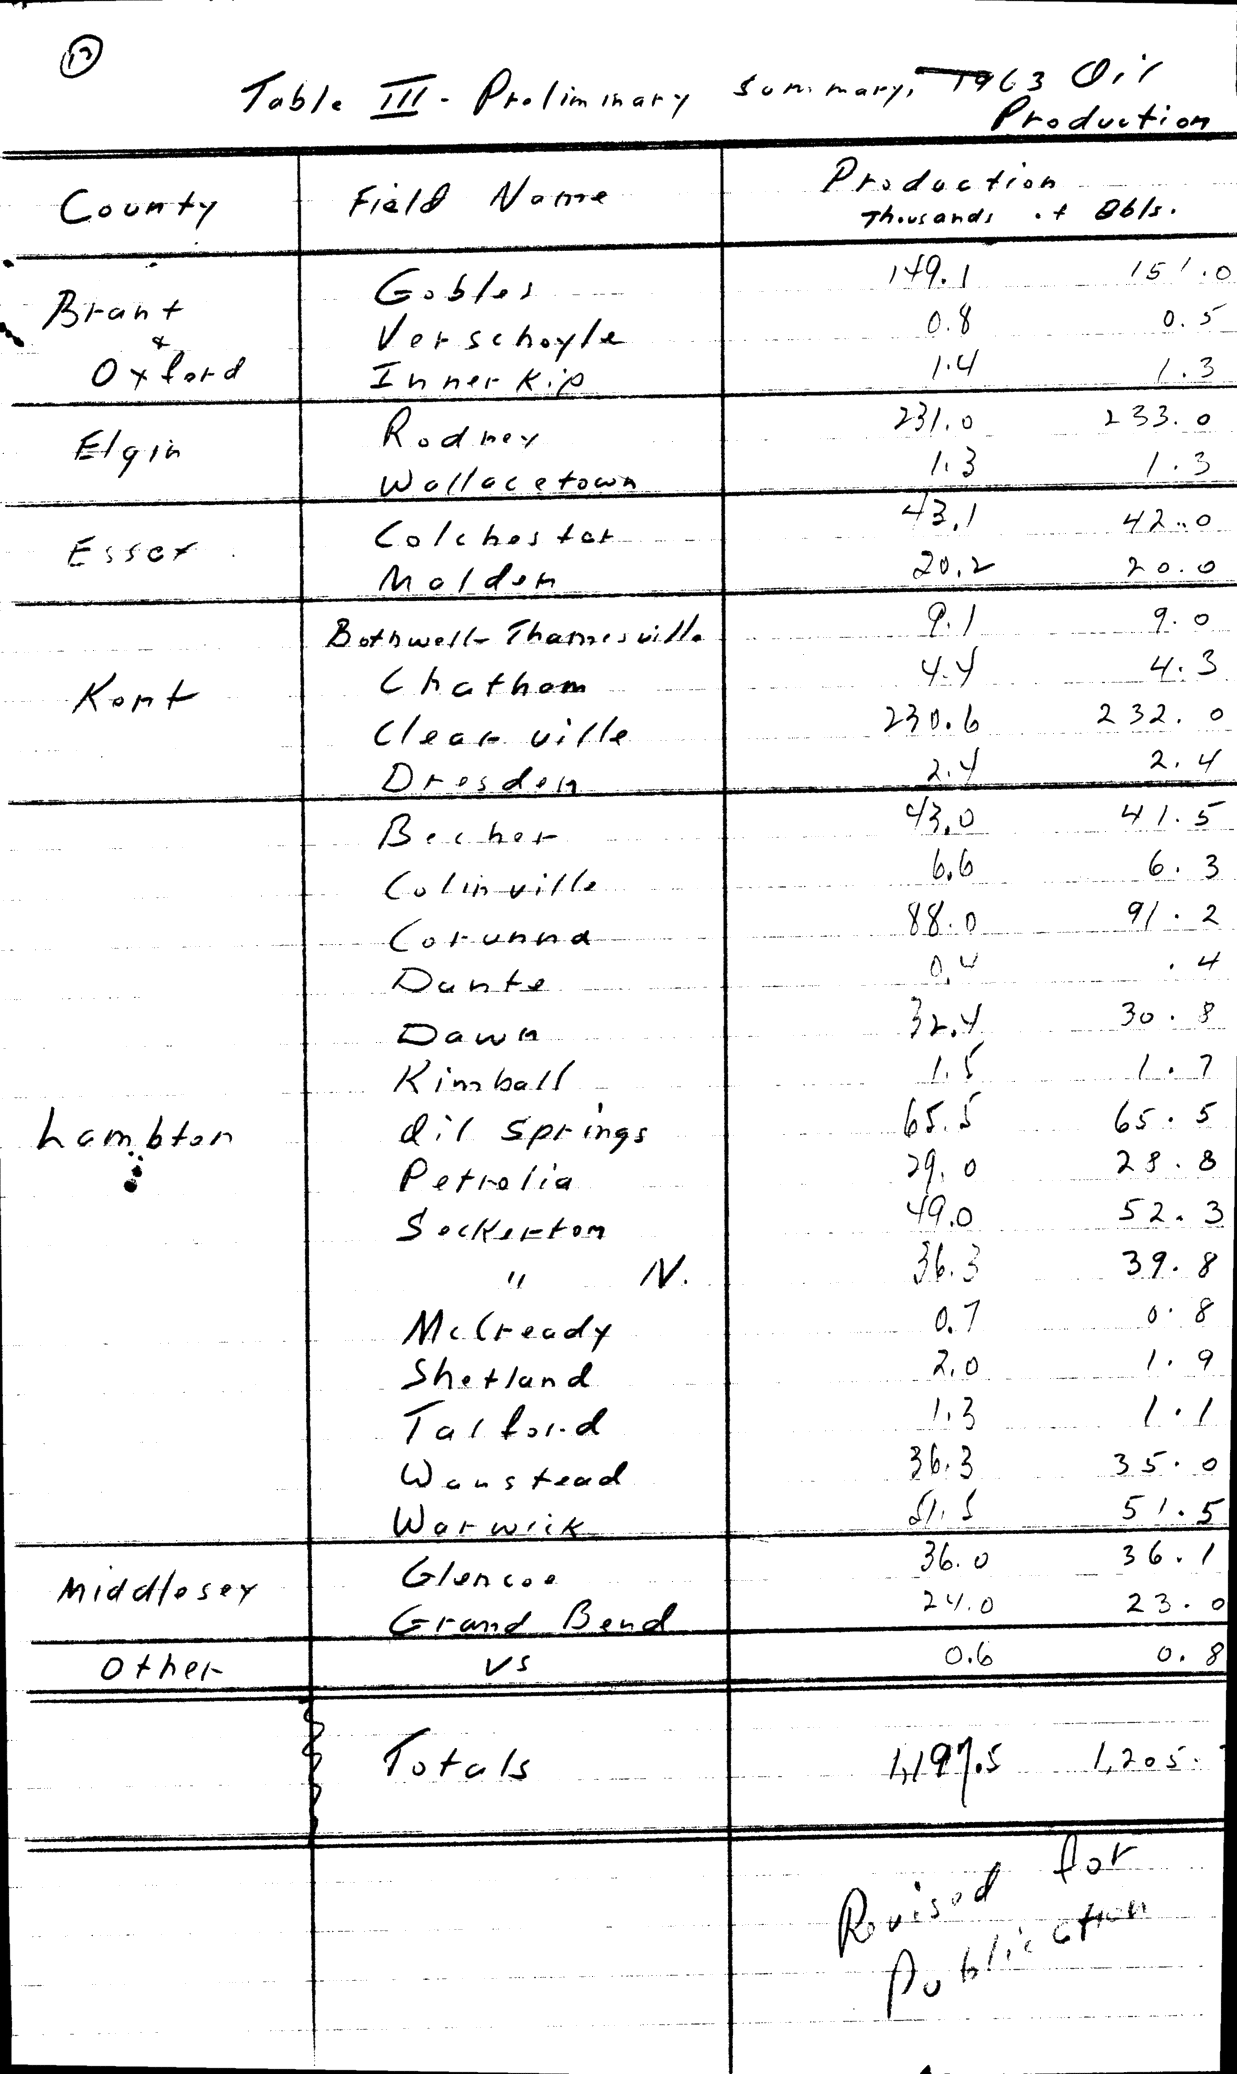 17
Table III - Preliminary Summary, 1963 Oil
Production
County Field Name Production
Thousands of Bbls.
Brant & Oxford Gobles 149.1 151.0
Verschoyle 0.8 0.5
Innerkip 1.4 1.3
Elgin Rodney 231.0 233.0
Wallacetown 1.3 1.3
Essex Colchester 43.1 42.0
Malden 20.2 20.0
Kent Bothwell-Thamesville 9.1 9.0
Chatham 4.4 4.3
Clearville 230.6 232.0
Dresden 2.4 2.4
Lambton Becher 43.0 41.5
Colinville 6.6 6.3
Corunna 88.0 91.2
Dante 0.4 .4
Dawn 32.4 30.8
Kimball 1.5 1.7
Oil Springs 65.5 65.5
Petrolia 29.0 28.8
Seckerton 49.0 52.3
" N. 36.3 39.8
McCready 0.7 0.8
Shetland 2.0 1.9
Talford 1.3 1.1
Wanstead 36.3 35.0
Warwick 51.5 51.5
Middlesex Glencoe 36.0 36.1
Grand Bend 24.0 23.0
Other vs 0.6 0.8
Totals 1,197.5 1,205.
Revised for
Publication